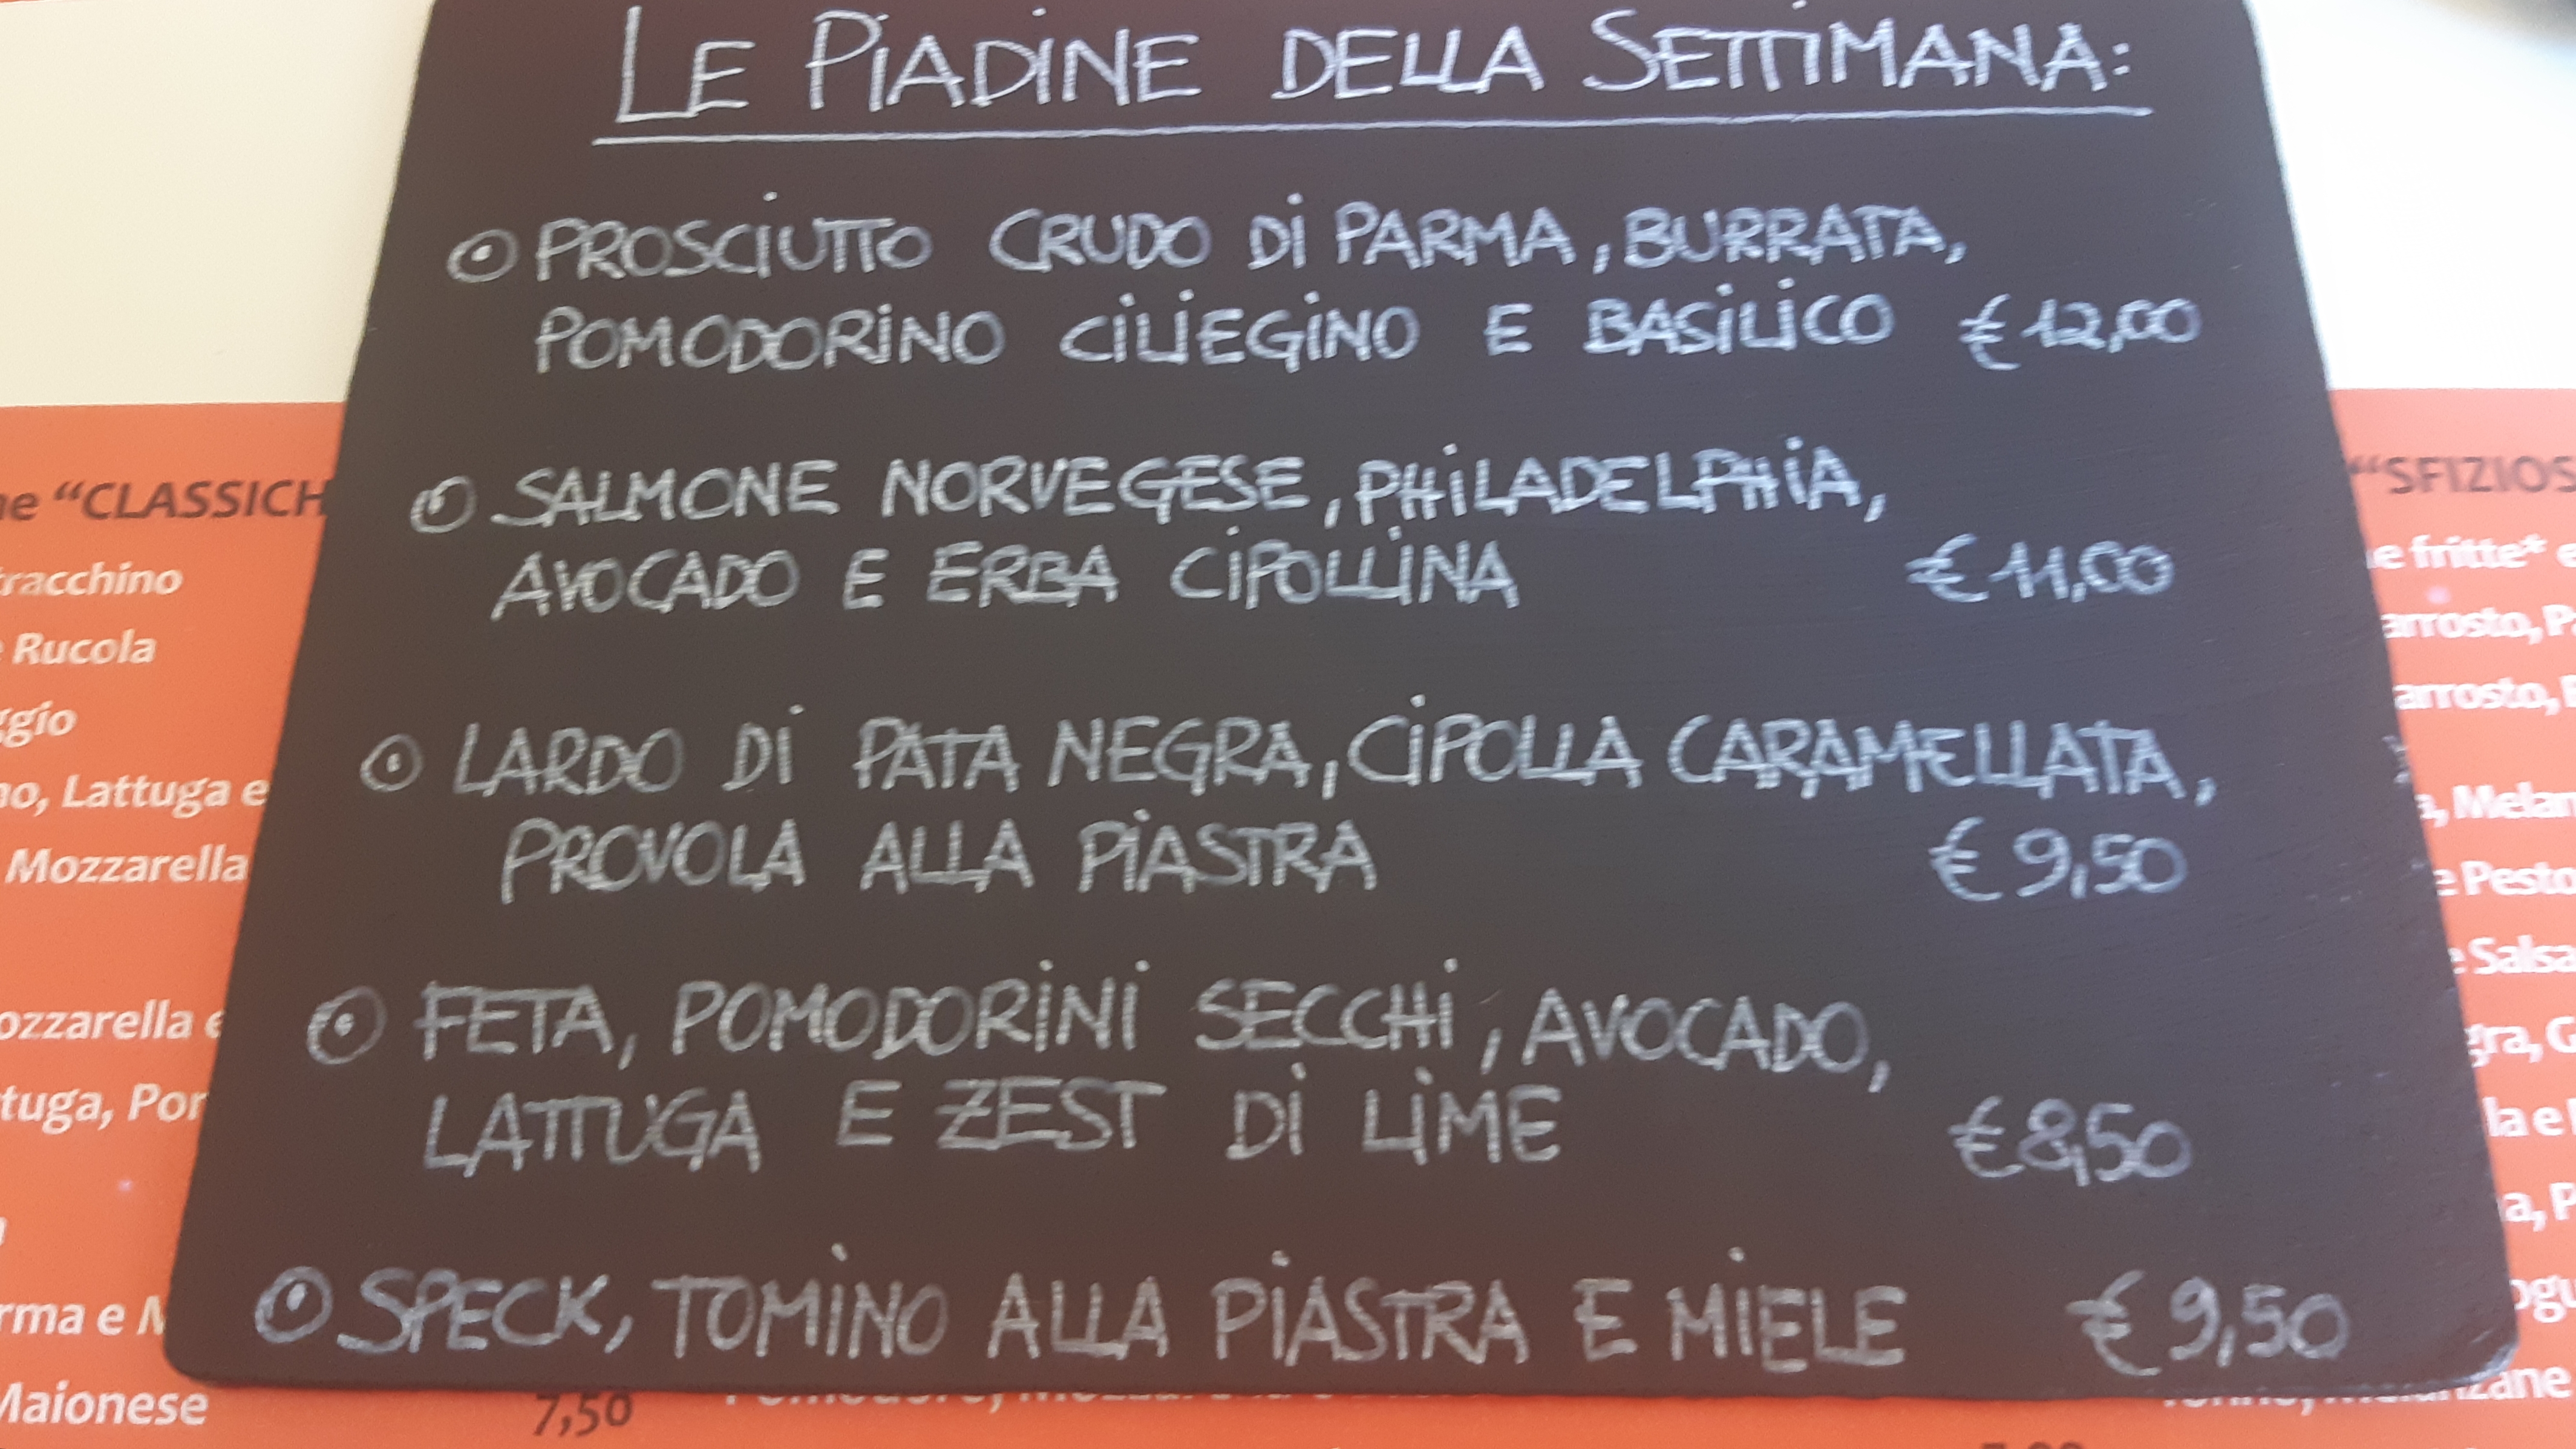 LE PIADINE DELLA SETTIMANA:
PROSCIUTTO CRUDO DI PARMA, BURRATA,
POMODORINO CILIEGINO E BASILICO € 12,00
SALMONE NORVEGESE, PHILADELPHIA,
AVOCADO E ERBA CIPOLLINA € 11,00
LARDO DI PATA NEGRA, CIPOLLA CARAMELLATA,
PROVOLA ALLA PIASTRA € 9,50
FETA, POMODORINI SECCHI, AVOCADO,
LATTUGA E ZEST DI LIME € 8,50
SPECK, TOMINO ALLA PIASTRA E MIELE € 9,50
"CLASSICH
racchino
Rucola
ggio
no, Lattuga e
Mozzarella
ozzarella e
tuga, Por
rma e M
Maionese 7,50
"SFIZIOS
e fritte* e
arrosto, P
arrosto,
, Melan
e Pesto
e Salsa
gra, G
la e
a, P